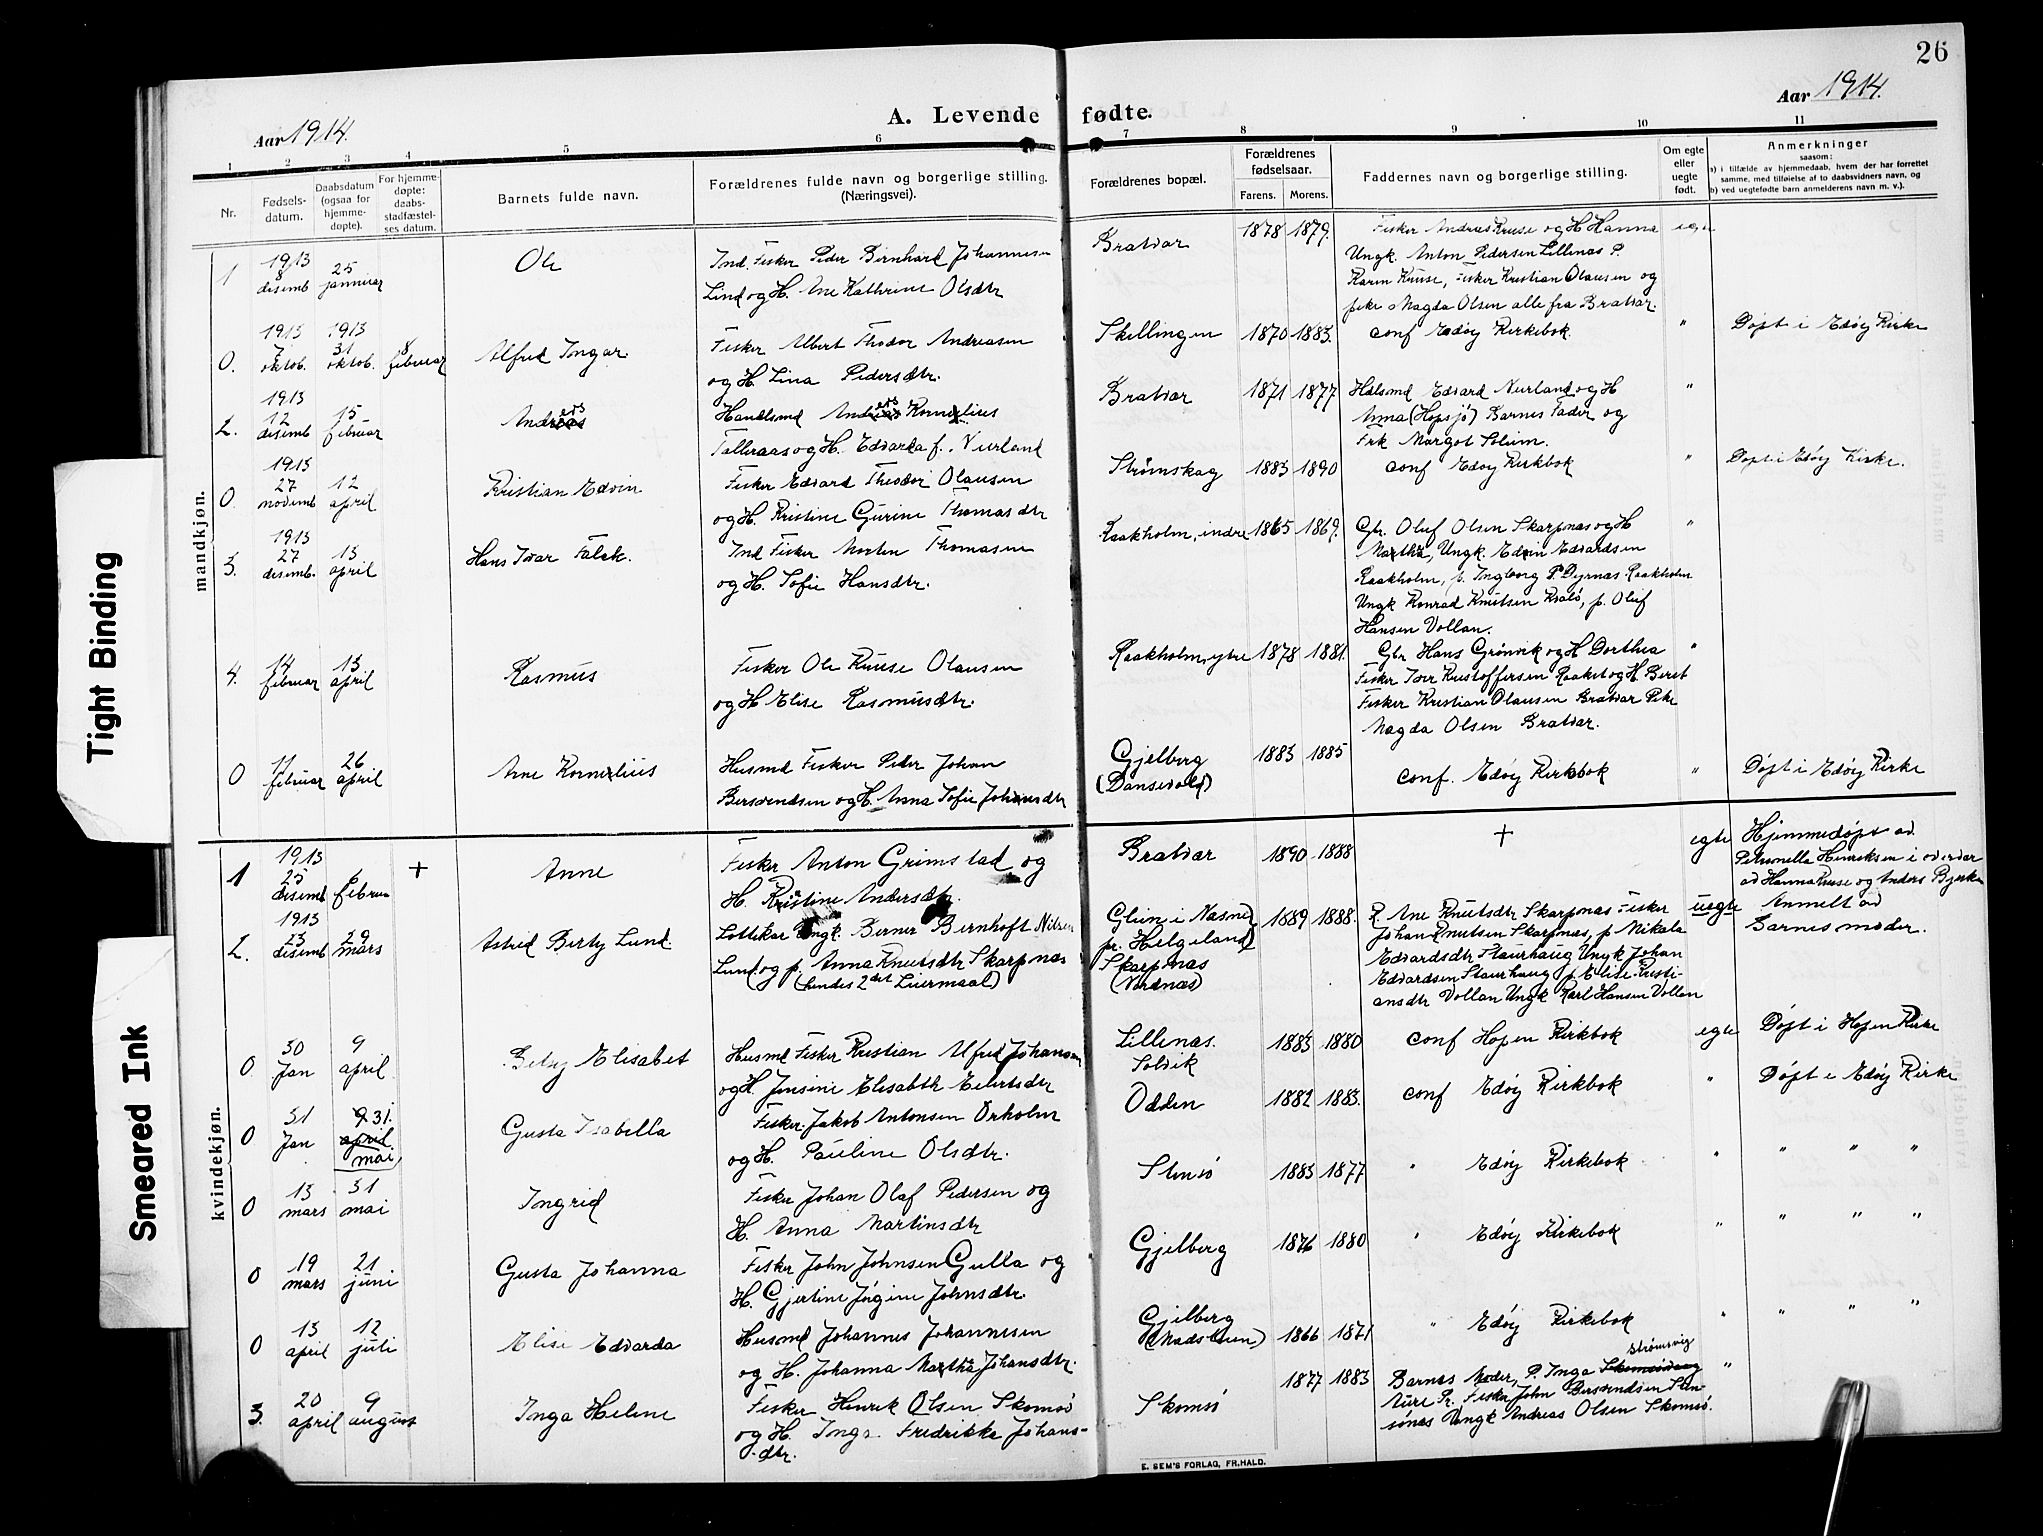 26
Aar 1914.
A. Levende fødte.
Aar 1914.
1 2 3 4 5 6 7 8 9 10 11
Nr.
Fødsels-
datum.
Daabsdatum
(ogsaa for
hjemme-
døpte).
For hjemme-
døpte:
daabs-
stadfæstel-
ses datum.
Barnets fulde navn.
Forældrenes fulde navn og borgerlige stilling.
(Næringsvei).
Forældrenes bopæl.
Forældrenes
fødselsaar.
Farens. Morens.
Faddernes navn og borgerlige stilling.
Om egte
eller
uegte
født.
Anmerkninger
saasom:
a) i tilfælde av hjemmedaab, hvem der har forrettet
samme, med tilføielse af to daabsvidners navn, og
b) ved uegtefødte barn anmelderens navn m. v.).
mandkjøn.
1
1913
8 disemb
25 januar
Ole
Ind. Fisker Peder Bernhard Johannesen
Lind og H. Ane Kathrine Olsdtr
Bratvær
1878 1879.
Fisker Andreas Kruse og H Hanna
Ungk. Anton Pedersen Lillenas P.
Karen Kruse, Fisker Kristian Olausen og
pike Magda Olsen alle fra Bratvær.
egte
0.
1913
7 oktob.
1913
31 oktob.
8 februar
Alfred Ingar.
Fisker Albert Thodor Andreasen
og H. Lina Pedersdtr.
Skellingen
1870 1883.
conf Edøy Kirkebok.
"
Døpt i Edøy Kirke
2.
1913
12 disemb
15 februar
Anders
Handlsmd Anders Kornelius
Talleraas og H. Edvarda f. Nurland
Bratvær
1871 1877
Hdlsmd Edvard Nurland og H
Anna (Hopsjø) Barnes Fader og
Frk Margot Solum.
"
0.
1913
27 novemb
12 april
Kristian Edvin
Fisker Edvard Theodor Olausen
og H. Kristine Gurine Thomasdtr
Strømskag
1883 1890
conf Edøy Kirkbok
"
Døpt i Edøy Kirke.
3.
1913
27 disemb.
13 april
Hans Ivar Falck.
Ind Fisker Morten Thomasen
og H. Sofie Hansdtr.
Raakholm, indre
1865 1869.
Gbr. Oluf Olsen Skarpnas og H
Martha, Ungk. Edvin Edvardsen
Raakholm, p. Ingborg P. Dyrnas Raakholm
Ungk Konrad Knutsen , p. Oluf
Hansen Vollan.
"
4.
14 februar
13 april
Rasmus
Fisker Ole Kruse Olausen
og H Elise Rasmusdtr.
Raakholm, ytre
1878 1881.
Gbr Hans Grønvik og H Dorthea
Fisker Iver Kristoffersen Raaket og H Beret
Fisker Kristian Olausen Bratvær Pike
Magda Olsen Bratvær.
"
0
11 februar
26 april
Arne Kornelius
Husmd Fisker Peder Johan
Bersvendsen og H. Anna Sofie Johansdtr
Gjelberg
(Dansevold)
1883 1885
conf. Edøy Kirkbok
"
Døpt i Edøy Kirke
kvindekjøn.
1
1913
25 disemb
8 februar
+
Anne
Fisker Anton Grimstad og
H. Kristine Andersdtr.
Bratvær
1890 1888
+
egte
Hjemmedøpt av
Petronella Henriksen i overvær
av Hanna Kruse og Anders Bjerkan
2.
1913
23 disemb
29 mars
Astrid Berty Lund.
Lottekar Ungk. Berner Bernhoft Nilsen
Lund og p. Anna Knutsdtr Skarpnas
(hendes 2det Leiermaal)
Glein i Nasne
pr. Helgeland)
Skarpnas
(Nordnas)
1889 1888.
P. Ane Knutsdtr Skarpnas Fisker
Johan Knutsen Skarpnas, p Nikala
Edvardsdtr Staurhaug Ungk Johan
Edvardsen Staurhaug p. Elise Kristi-
ansdtr Vollan Ungk Karl Hansen Vollan
uegte
Anmelt av
Barnes moder.
0
30 Jan
9 april
Betsy Elisabet
Husmd Fisker Kristian Alfred Johansen
og H. Jensine Elisabth Eilertsdtr
Lillenas.
Solvik
1883 1880
conf Hopen Kirkbok
egte
Døpt i Hopen Kirke
0
31 Jan
9 31.
april
mai
Gusta Isabella
Fisker Jakob Antonsen Orholm
og H. Pauline Olsdtr.
Odden
1882 1883.
conf Edøy Kirkbok
"
Døpt i Edøy Kirke
0
13 mars
31 mai
Ingrid
Fisker Johan Olaf Pedersen og
H. Anna Martinsdtr
Stensø
1883 1877
" Edøy Kirkebok
"
" " "
0
19 mars
21 juni
Gusta Johanna
Fisker John Johnsen Gulla og
H. Gjertine Jørgine Johnsdtr.
Gjelberg
1876 1880
" Edøy Kirkebok
"
" " "
0
13 april
12 juli
Elise Edvarda
Husmd Johannes Johannesen
og H. Johanna Martha Johansdtr.
Gjelberg
1866 1871
" Edøy Kirkebok
"
" " "
3.
20 april
9 august
Inga Helene
Fisker Henrik Olsen Skomsø
og H. Inga Fredrikke Johans-
dtr.
Skomsø
1877 1883
Strømsvig
Barnes Moder, P. Inga
Aure Pr. Fisker John Bersvendsen Sten-
sønas Ungk Andreas Olsen Skomsø.
"
E. SEM'S FORLAG, FR.HALD.
Tight Binding
Smeared Ink